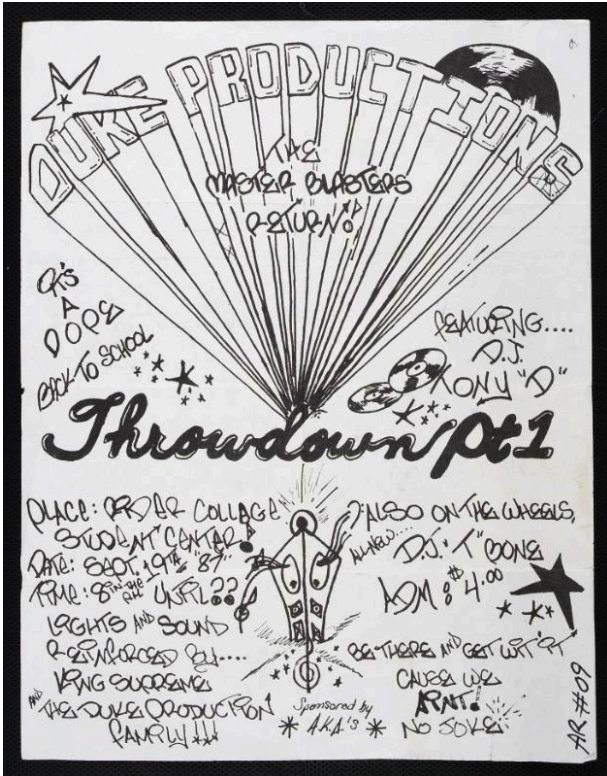 DUKE PRODUCTIONS
THE
MASTER BLASTERS
RETURN!
IT'S
A
DOPE
BACK TO SCHOOL
FEATURING....
D.J.
TONY "D"
Throwdown Pt 1
PLACE: RIDER COLLAGE
STUDENT CENTER!
DATE: SEPT. 19TH, "87"
TIME: 8 IN THE PM UNTIL??
LIGHTS AND SOUND
REINFORCED BY....
KING SUPREME
AND THE DUKE PRODUCTION
FAMILY!!!
Sponsored by
AKA's
ALSO ON THE WHEELS,
ALL NEW....
D.J. "T" BONE
ADM: $4.00
BE THERE AND GET WIT' IT
CAUSE WE
AINT!
NO JOKE
AR #09